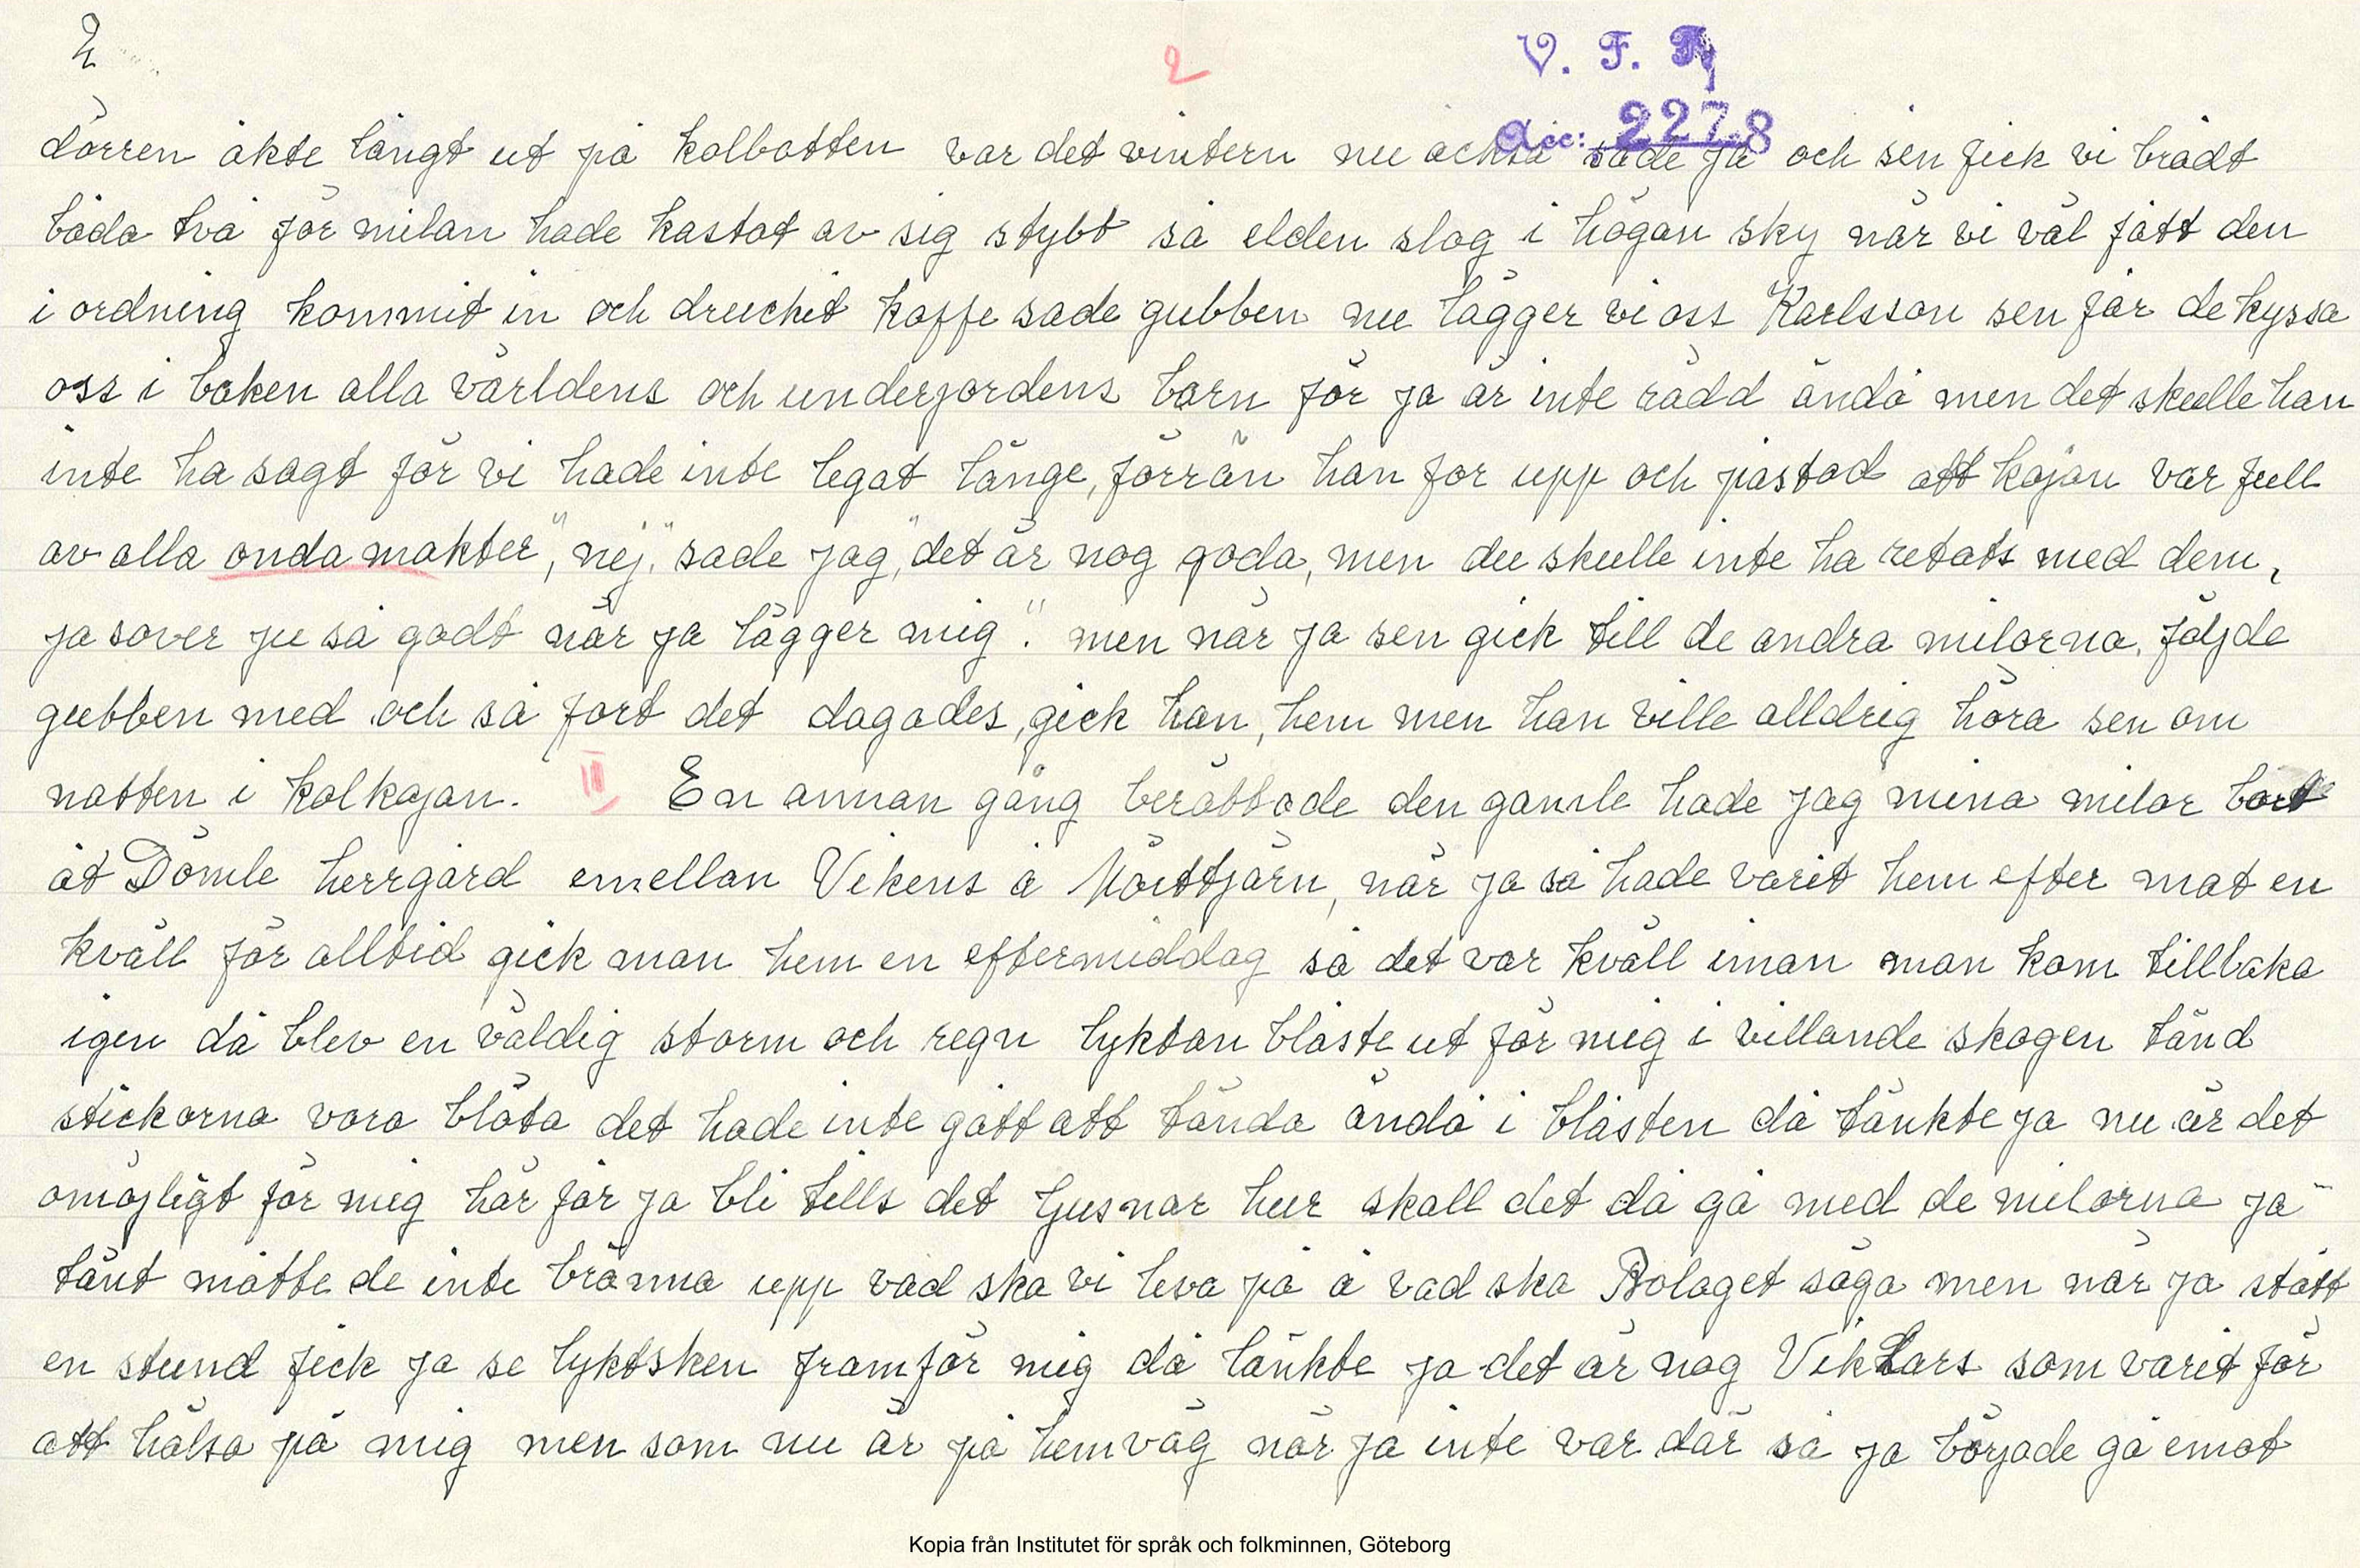 2
2
V. F. R
Acc: 2278
dörren åkte långt ut på kolbotten var det vintern nu också sade ja och sen fick vi brådt
båda två för milan hade kastat av sig stybb så elden slog i högan sky när vi väl fått den
i ordning kommit in och druckit kaffe sade gubben nu lägger vi oss Karlsson sen får de kyssa
oss i baken alla världens och underjordens barn för ja är inte rädd ändå men det skulle han
inte ha sagt för vi hade inte legat länge, förrän han for upp och påstod att kojan var full
av alla onda makter", "nej," sade jag, "det är nog goda, men du skulle inte ha retats med dem,
ja sover ju så godt när ja lägger mig". men när ja sen gick till de andra milorna, föjde
gubben med och så fort det dagades, gick han, hem men han ville alldrig höra sen om
natten i kolkojan. III En annan gång berättade den gamle hade jag mina milor bort
åt Dömle herrgård emellan Vikens å Mörttjärn, när ja så hade varit hem efter mat en
kväll för alltid gick man hem en eftermiddag så det var kväll innan man kom tillbaka
igen då blev en väldig storm och regn lyktan blåste ut för mig i villande skogen tänd
stickorna vora blöta det hade inte gått att tända ändå i blåsten då tänkte ja nu är det
omöjligt för mig här får ja bli tills det ljusnar hur skall det då gå med de milorna ja
tänt måtte de inte bränna upp vad ska vi leva på å vad ska Bolaget säga men när ja stått
en stund fick ja se lyktsken framför mig då tänkte ja det är nog Vik Lars som varit för
att hälsa på mig men som nu är på hemväg när ja inte var där så ja började gå emot
Kopia från Institutet för språk och folkminnen, Göteborg